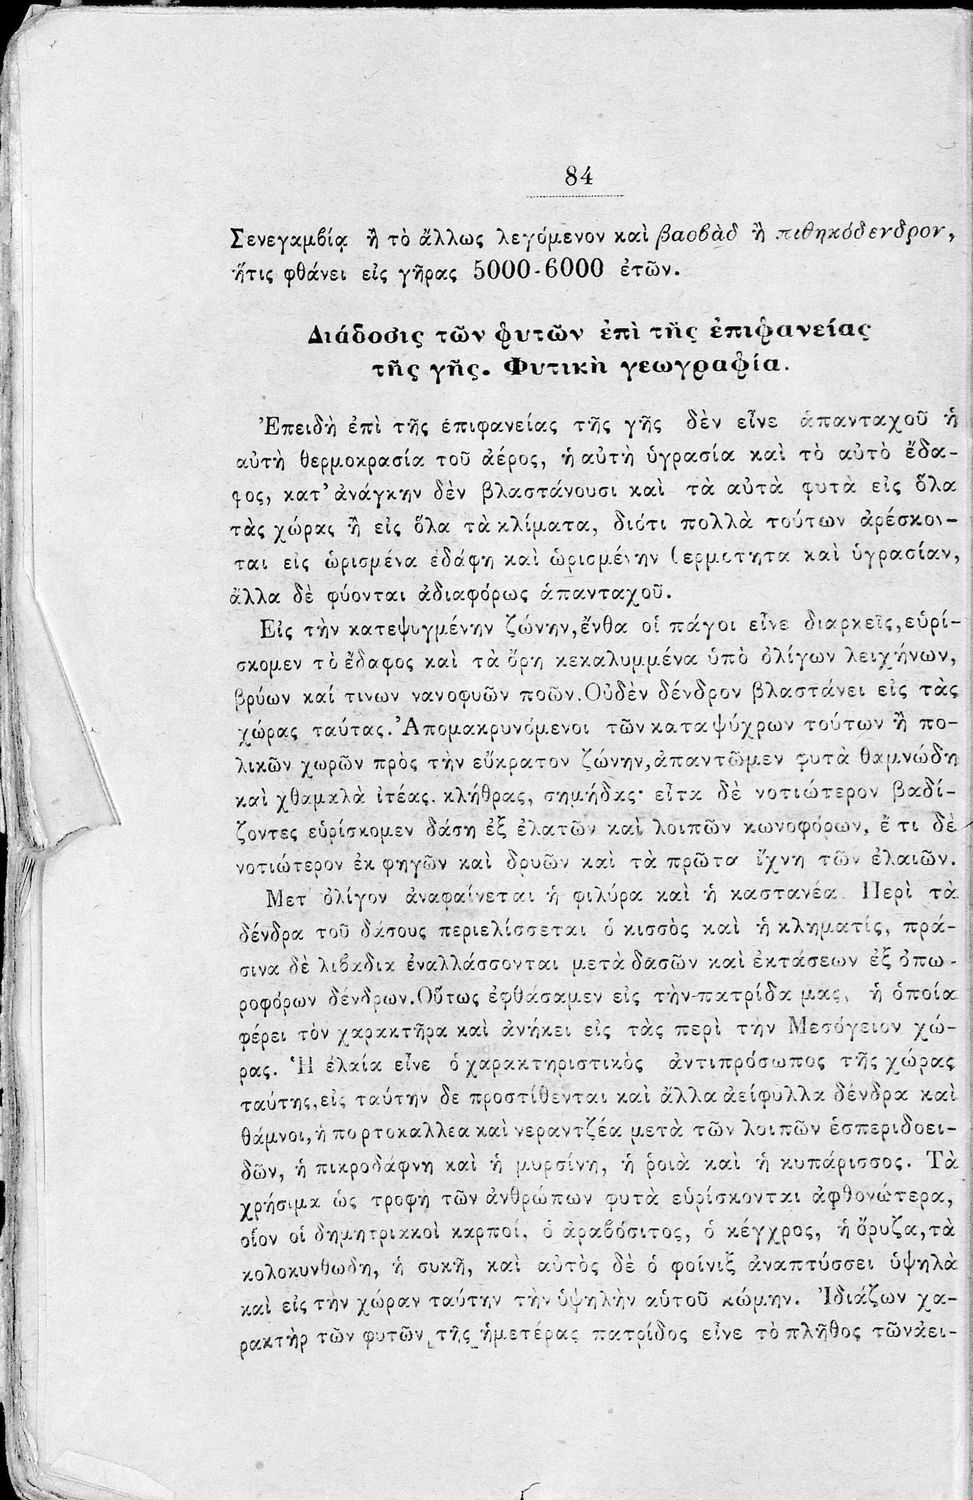 84
Σενεγαμβίᾳ ἢ τὸ ἄλλως λεγόμενον καὶ βαοβὰδ ἢ πιθηκόδενδρον,
ἥτις φθάνει εἰς γῆρας 5000-6000 ἐτῶν.
Διάδοσις τῶν φυτῶν ἐπὶ τῆς ἐπιφανείας
τῆς γῆς. Φυτικὴ γεωγραφία.
Ἐπειδὴ ἐπὶ τῆς ἐπιφανείας τῆς γῆς δὲν εἶνε ἁπανταχοῦ ἡ
αὐτὴ θερμοκρασία τοῦ ἀέρος, ἡ αὐτὴ ὑγρασία καὶ τὸ αὐτὸ ἔδα-
φος, κατ’ ἀνάγκην δὲν βλαστάνουσι καὶ τὰ αὐτὰ φυτὰ εἰς ὅλα
τὰς χώρας ἢ εἰς ὅλα τὰ κλίματα, διότι πολλὰ τούτων ἀρέσκον-
ται εἰς ὡρισμένα ἐδάφη καὶ ὡρισμένην θερμότητα καὶ ὑγρασίαν,
ἄλλα δὲ φύονται ἀδιαφόρως ἁπανταχοῦ.
Εἰς τὴν κατεψυγμένην ζώνην, ἔνθα οἱ πάγοι εἶνε διαρκεῖς, εὑρί-
σκομεν τὸ ἔδαφος καὶ τὰ ὄρη κεκαλυμμένα ὑπὸ ὀλίγων λειχήνων,
βρύων καί τινων νανοφυῶν ποῶν. Οὐδὲν δένδρον βλαστάνει εἰς τὰς
χώρας ταύτας. Ἀπομακρυνόμενοι τῶν καταψύχρων τούτων ἢ πο-
λικῶν χωρῶν πρὸς τὴν εὔκρατον ζώνην, ἀπαντῶμεν φυτὰ θαμνώδη
καὶ χθαμαλὰ ἰτέας, κλήθρας, σημήδας· εἶτα δὲ νοτιώτερον βαδί-
ζοντες εὑρίσκομεν δάση ἐξ ἐλατῶν καὶ λοιπῶν κωνοφόρων, ἔτι δὲ
νοτιώτερον ἐκ φηγῶν καὶ δρυῶν καὶ τὰ πρῶτα ἴχνη τῶν ἐλαιῶν.
Μετ’ ὀλίγον ἀναφαίνεται ἡ φιλύρα καὶ ἡ καστανέα. Περὶ τὰ
δένδρα τοῦ δάσους περιελίσσεται ὁ κισσὸς καὶ ἡ κληματίς, πρά-
σινα δὲ λιβάδια ἐναλλάσσονται μετὰ δασῶν καὶ ἐκτάσεων ἐξ ὀπω-
ροφόρων δένδρων. Οὕτως ἐφθάσαμεν εἰς τὴν πατρίδα μας, ἡ ὁποία
φέρει τὸν χαρακτῆρα καὶ ἀνήκει εἰς τὰς περὶ τὴν Μεσόγειον χώ-
ρας. Ἡ ἐλαία εἶνε ὁ χαρακτηριστικὸς ἀντιπρόσωπος τῆς χώρας
ταύτης, εἰς ταύτην δὲ προστίθενται καὶ ἄλλα ἀείφυλλα δένδρα καὶ
θάμνοι, ἡ πορτοκαλλέα καὶ νεραντζέα μετὰ τῶν λοιπῶν ἑσπεριδοει-
δῶν, ἡ πικροδάφνη καὶ ἡ μυρσίνη, ἡ ῥοιὰ καὶ ἡ κυπάρισσος. Τὰ
χρήσιμα ὡς τροφὴ τῶν ἀνθρώπων φυτὰ εὑρίσκονται ἀφθονώτερα,
οἷον οἱ δημητριακοὶ καρποί, ὁ ἀραβόσιτος, ὁ κέγχρος, ἡ ὄρυζα, τὰ
κολοκυνθώδη, ἡ συκῆ, καὶ αὐτὸς δὲ ὁ φοίνιξ ἀναπτύσσει ὑψηλὰ
καὶ εἰς τὴν χώραν ταύτην τὴν ὑψηλὴν αὐτοῦ κώμην. Ἰδιάζων χα-
ρακτὴρ τῶν φυτῶν τῆς ἡμετέρας πατρίδος εἶνε τὸ πλῆθος τῶν ἀει-